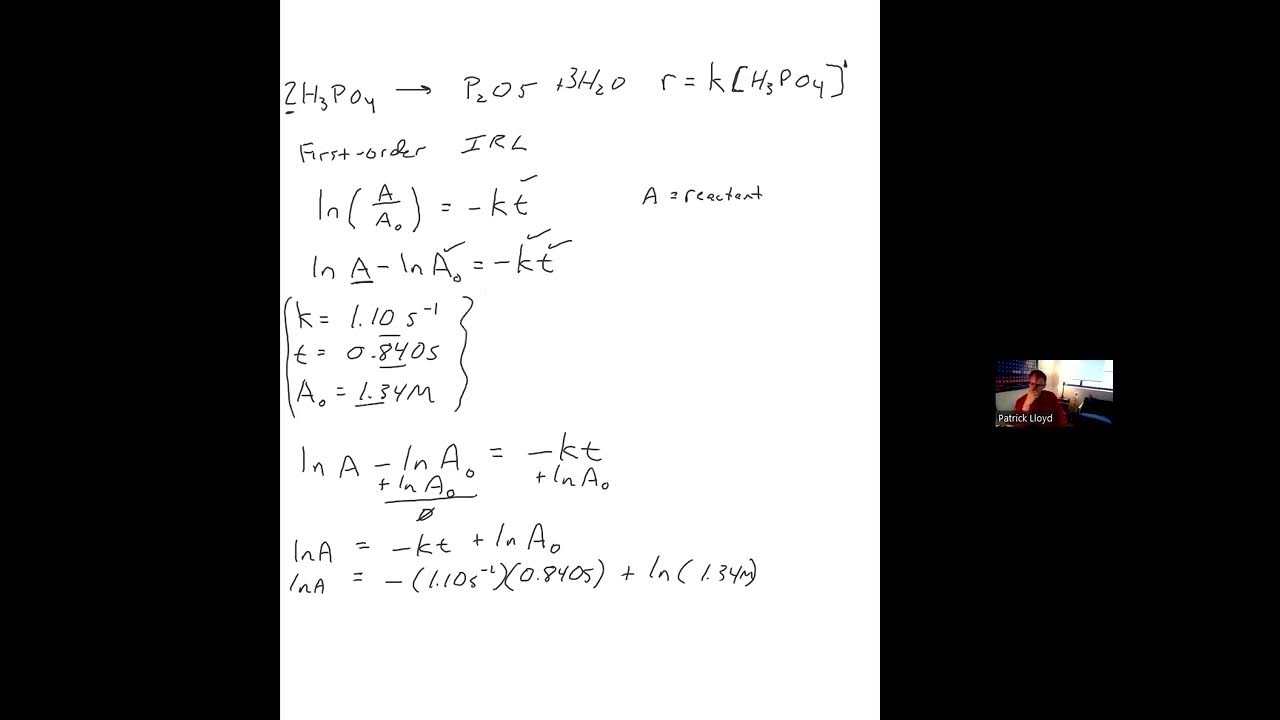 2H₃PO₄ → P₂O5 +3H₂O r = k[H₃PO₄]¹
First-order IRL
ln(A/A₀) = -kt ✓
A = reactant
ln A - ln A₀ ✓ = -k ✓ t ✓
k = 1.10 s⁻¹
t = 0.840s
A₀ = 1.34M
ln A - ln A₀ = -kt
+ ln A₀ + ln A₀
0
lnA = -kt + ln A₀
lnA = -(1.10s⁻¹)(0.840s) + ln(1.34M)
Patrick Lloyd